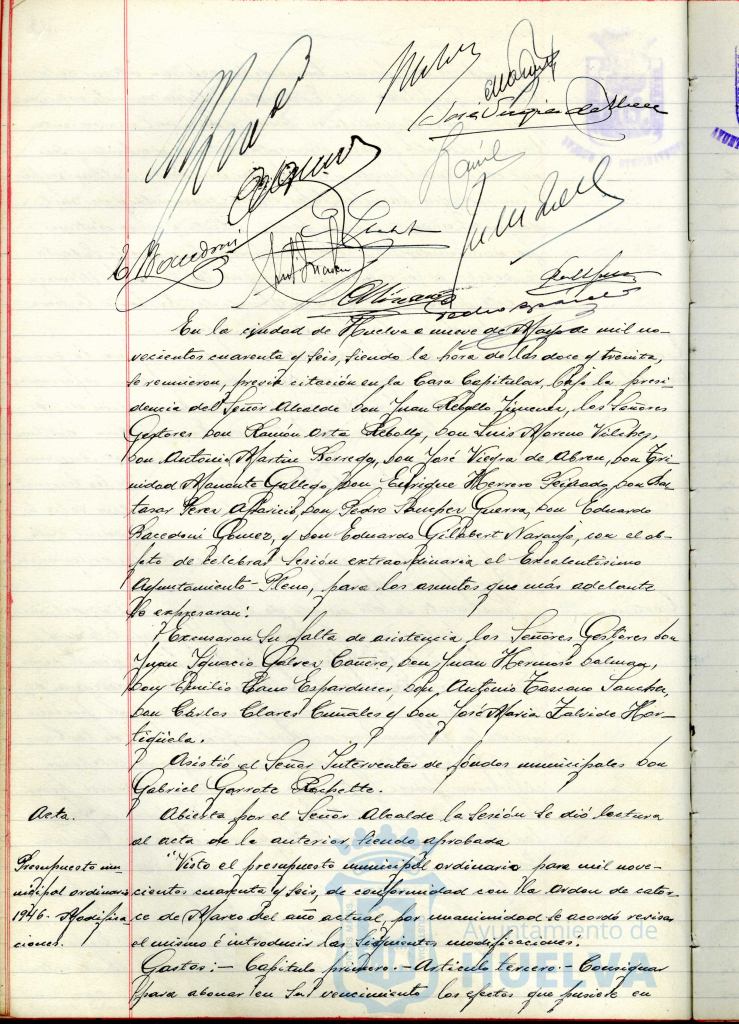 José Viegas de Abreu
E. Bacedoni
Pedro Sánchez
En la ciudad de Huelva a nueve de Mayo de mil no-
vecientos cuarenta y seis, siendo la hora de las doce y treinta,
se reunieron, previa citación en la Casa Capitular, bajo la presi-
dencia del Señor Alcalde Don Juan Rebollo Jimenez, los Señores
Gestores Don Ramón Orta Rebollo, Don Luis Moreno Vilches,
Don Antonio Martin Borrego, Don José Viegra de Abreu, Don Tri-
nidad Gallego, Don Enrique Herrero Don Bal-
tasar Perez Aparicio, Don Pedro Sanchez Guerra, Don Eduardo
Bacedoni Gomez, y Don Eduardo Gilabert Naranjo, con el ob-
jeto de celebrar Sesión extraordinaria el Excelentísimo
Ayuntamiento Pleno, para los asuntos que más adelante
se expresaran:
Excusaron su falta de asistencia los Señores Gestores Don
Juan Ignacio Galvez Cañero, Don Juan Hermoso
Don Emilio Cano Don Antonio Toscano Sanchez,
Don Cárlos Clares y Don José Maria Zalvide Hor-
tigüela.
Asistió el Señor Interventor de fondos municipales Don
Gabriel Garrote
Acta.
Abierta por el Señor Alcalde la Sesión se dió lectura
al acta de la anterior, siendo aprobada
Presupuesto mu-
nicipal ordinario
1946- Modifica-
ciones.
"Visto el presupuesto municipal ordinario para mil nove-
cientos cuarenta y seis, de conformidad con la Orden de cator-
ce de Marzo del año actual, por unanimidad se acordó revisar
el mismo é introducir las siguientes modificaciones:
Gastos:- Capítulo primero.- Artículo tercero:- Consignar
para abonar en su vencimiento los efectos que pusiere en
Ayuntamiento de
HUELVA